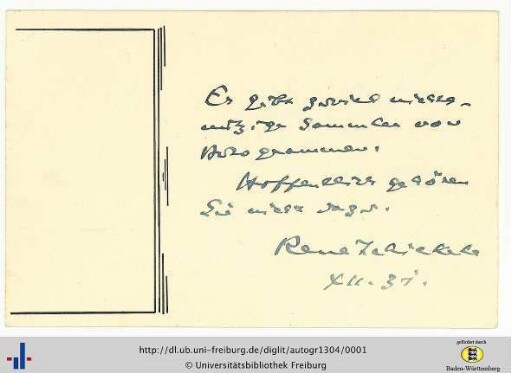 Es gibt zuviel nichts-
nutzige Sammler von
Autogrammen.
Hoffentlich gehören
Sie nicht dazu.
René Schickele
XII. 31.
http://dl.ub.uni-freiburg.de/diglit/autogr1304/0001
© Universitätsbibliothek Freiburg
gefördert durch
Baden-Württemberg